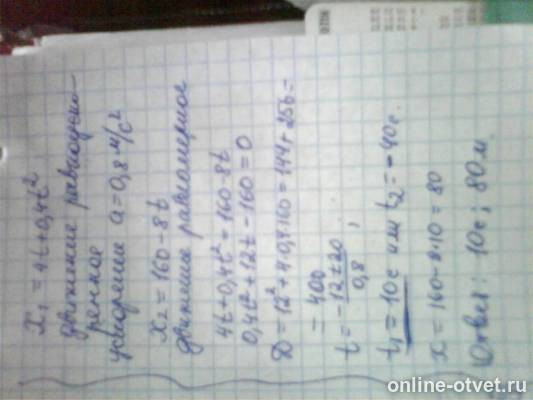 x₁ = 4t+0,4t²
движение равноуско-
ренное
ускорение a=0,8 м/с²
x₂ = 160-8t
движение равномерное
4t+0,4t²=160-8t
0,4t²+12t-160=0
D=12²+4·0,4·160=144+256=
= 400
t = -12±20 / 0,8 ,
t₁=10c или t₂=-40c.
x = 160-8·10=80
Ответ: 10c; 80м.
online-otvet.ru